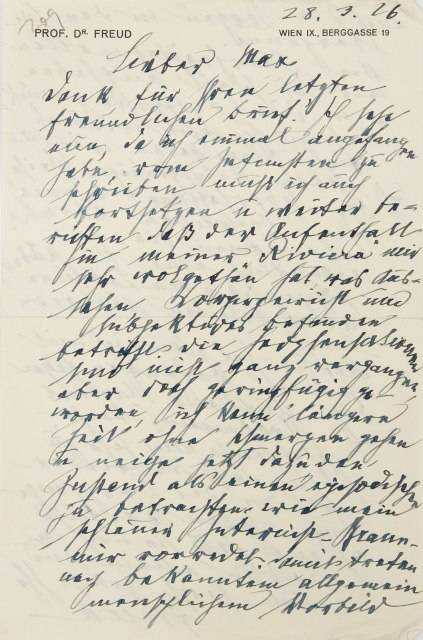 28. 3. 26.
PROF. DR. FREUD
WIEN IX., BERGGASSE 19
Lieber Max
Dank für Ihren letzten
freundlichen Brief. Ich sehe
ein, da ich einmal angefangen
habe, vom Intimsten zu
schreiben muß ich auch
fortsetzen u weiter be-
richten daß der Aufenthalt
in meiner Riviera mir
sehr wolgethan hat was Aus-
sehen Körpergewicht und
subjektives Befinden
betrifft die Herzsensationen
sind nicht ganz vergangen
aber doch geringfügig ge-
worden, ich kann längere
Zeit ohne Schmerzen gehen
u neige jetzt dazu den
Zustand als einen episodischen
zu betrachten wie mein
schlauer
mir vorredet, mit
nach bekanntem allgemein
menschlichem Vorbild